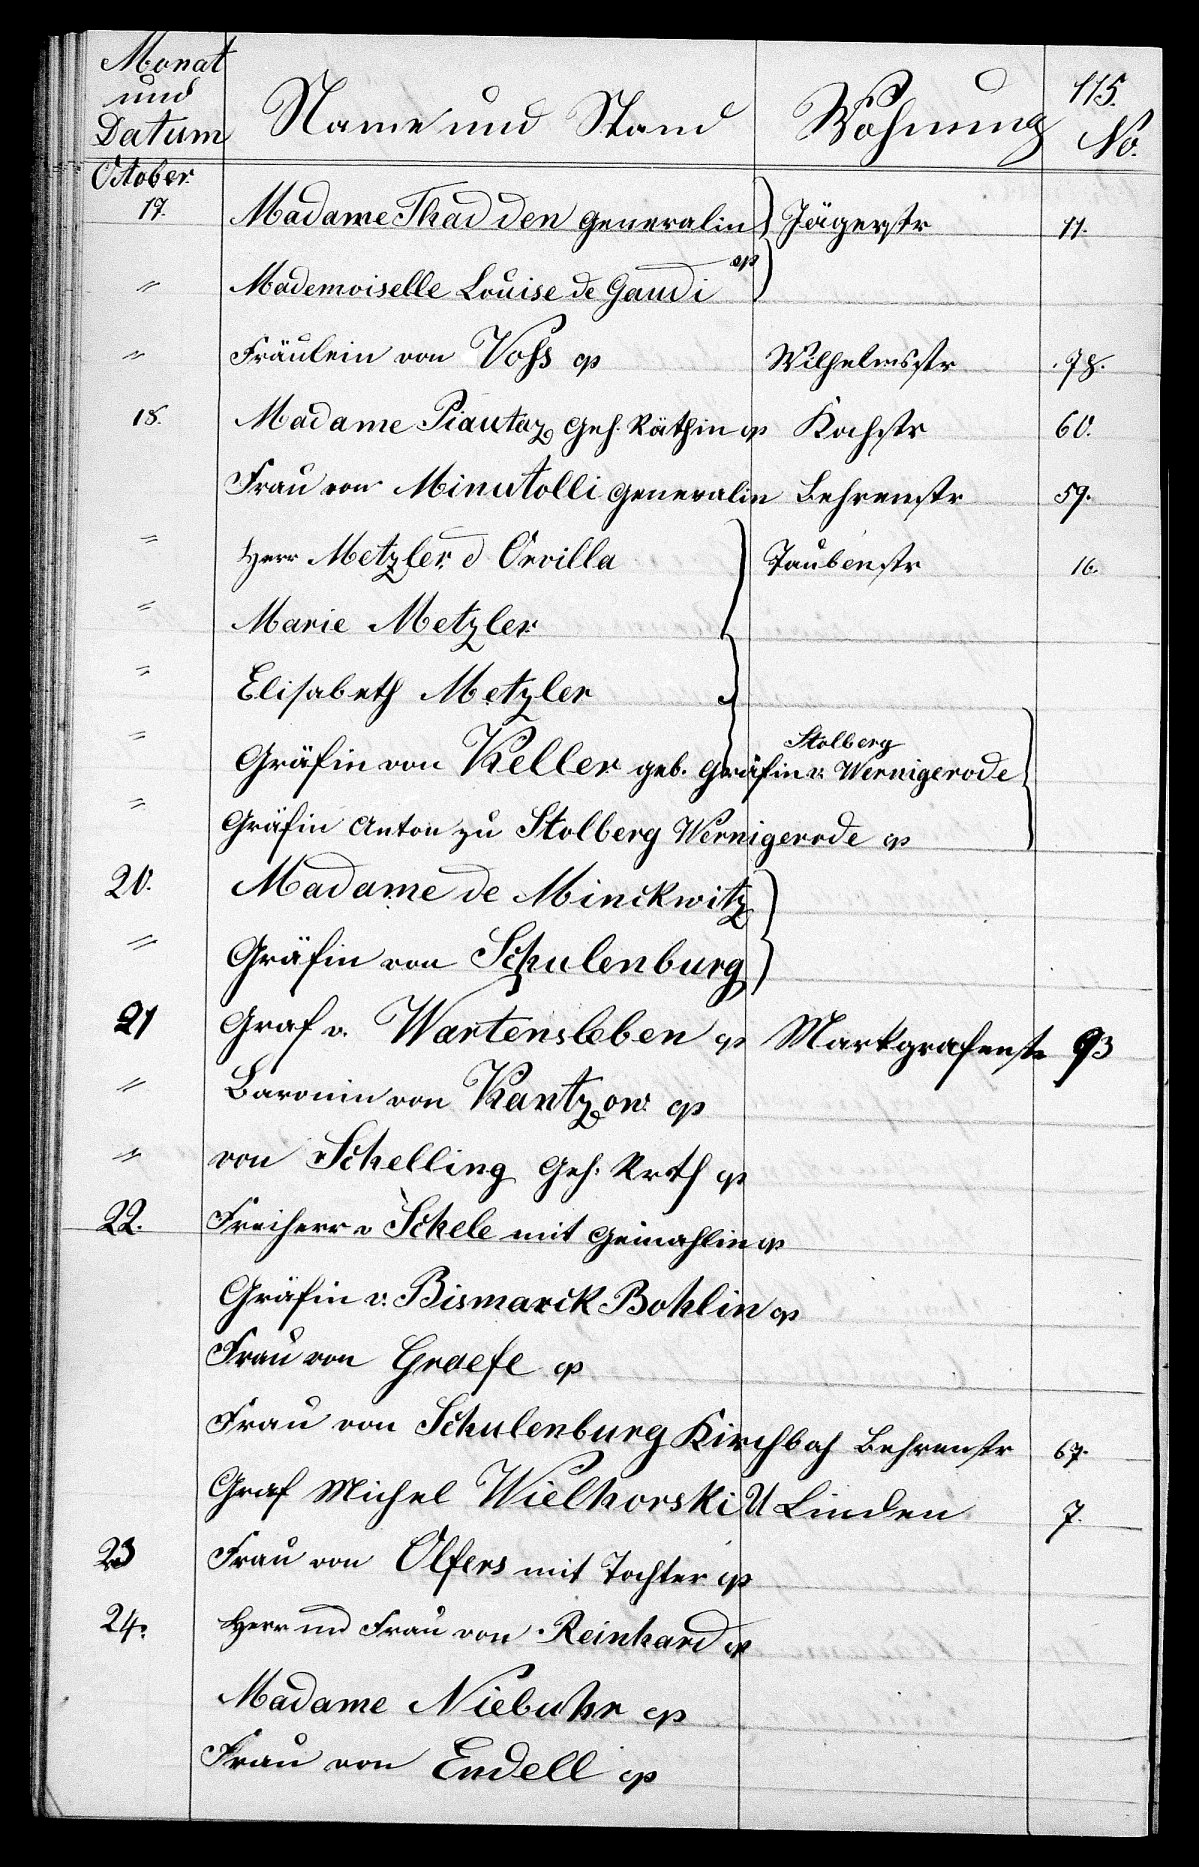 115.
Monat und Datum Name und Stand Wohnung No.
October
17. Madame Thadden Generalin Jägerstr 11.
" Mademoiselle Louise de Gaudi cp
" Fräulein von Voß cp Wilhelmsstr 78.
18. Madame Piautaz Geh. Räthin cp Kochstr 60.
Frau von Minutolli Generalin Behrenstr 59.
" Herr Metzler d Orvilla Taubenstr 16.
" Marie Metzler
" Elisabeth Metzler
Stolberg
" Gräfin von Keller geb. Gräfin v. Wernigerode
" Gräfin Anton zu Stolberg Wernigerode cp
20. Madame de Minckwitz
" Gräfin von Schulenburg
21 Graf v. Wartensleben cp Markgrafenstr 93
" Baronin von Kantzow cp
" von Schelling Geh. Rath cp
22. Freiherr v Schele mit Gemahlin cp
Gräfin v. Bismarck Bohlin cp
Frau von Graefe cp
Frau von Schulenburg Kirchbach Behrenstr 67.
Graf Michel Wielhorski U Linden 7.
23 Frau von Olfers mit Tochter cp
24. Herr und Frau von Reinhard cp
Madame Niebuhr cp
Frau von Endell cp